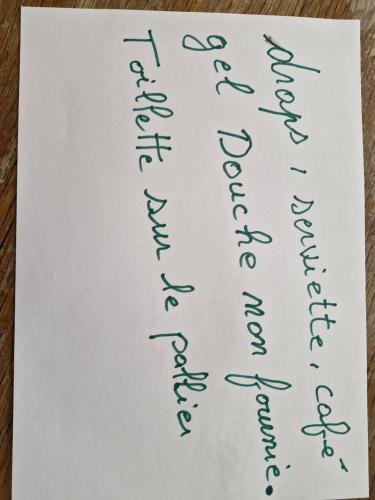 draps, serviette, café
gel Douche non fournie.
Toillette sur le pallier